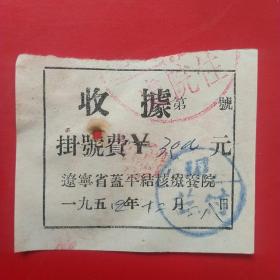 收據第 號
掛號費￥300元
遼寧省蓋平結核療養院
一九五 年十二月 日